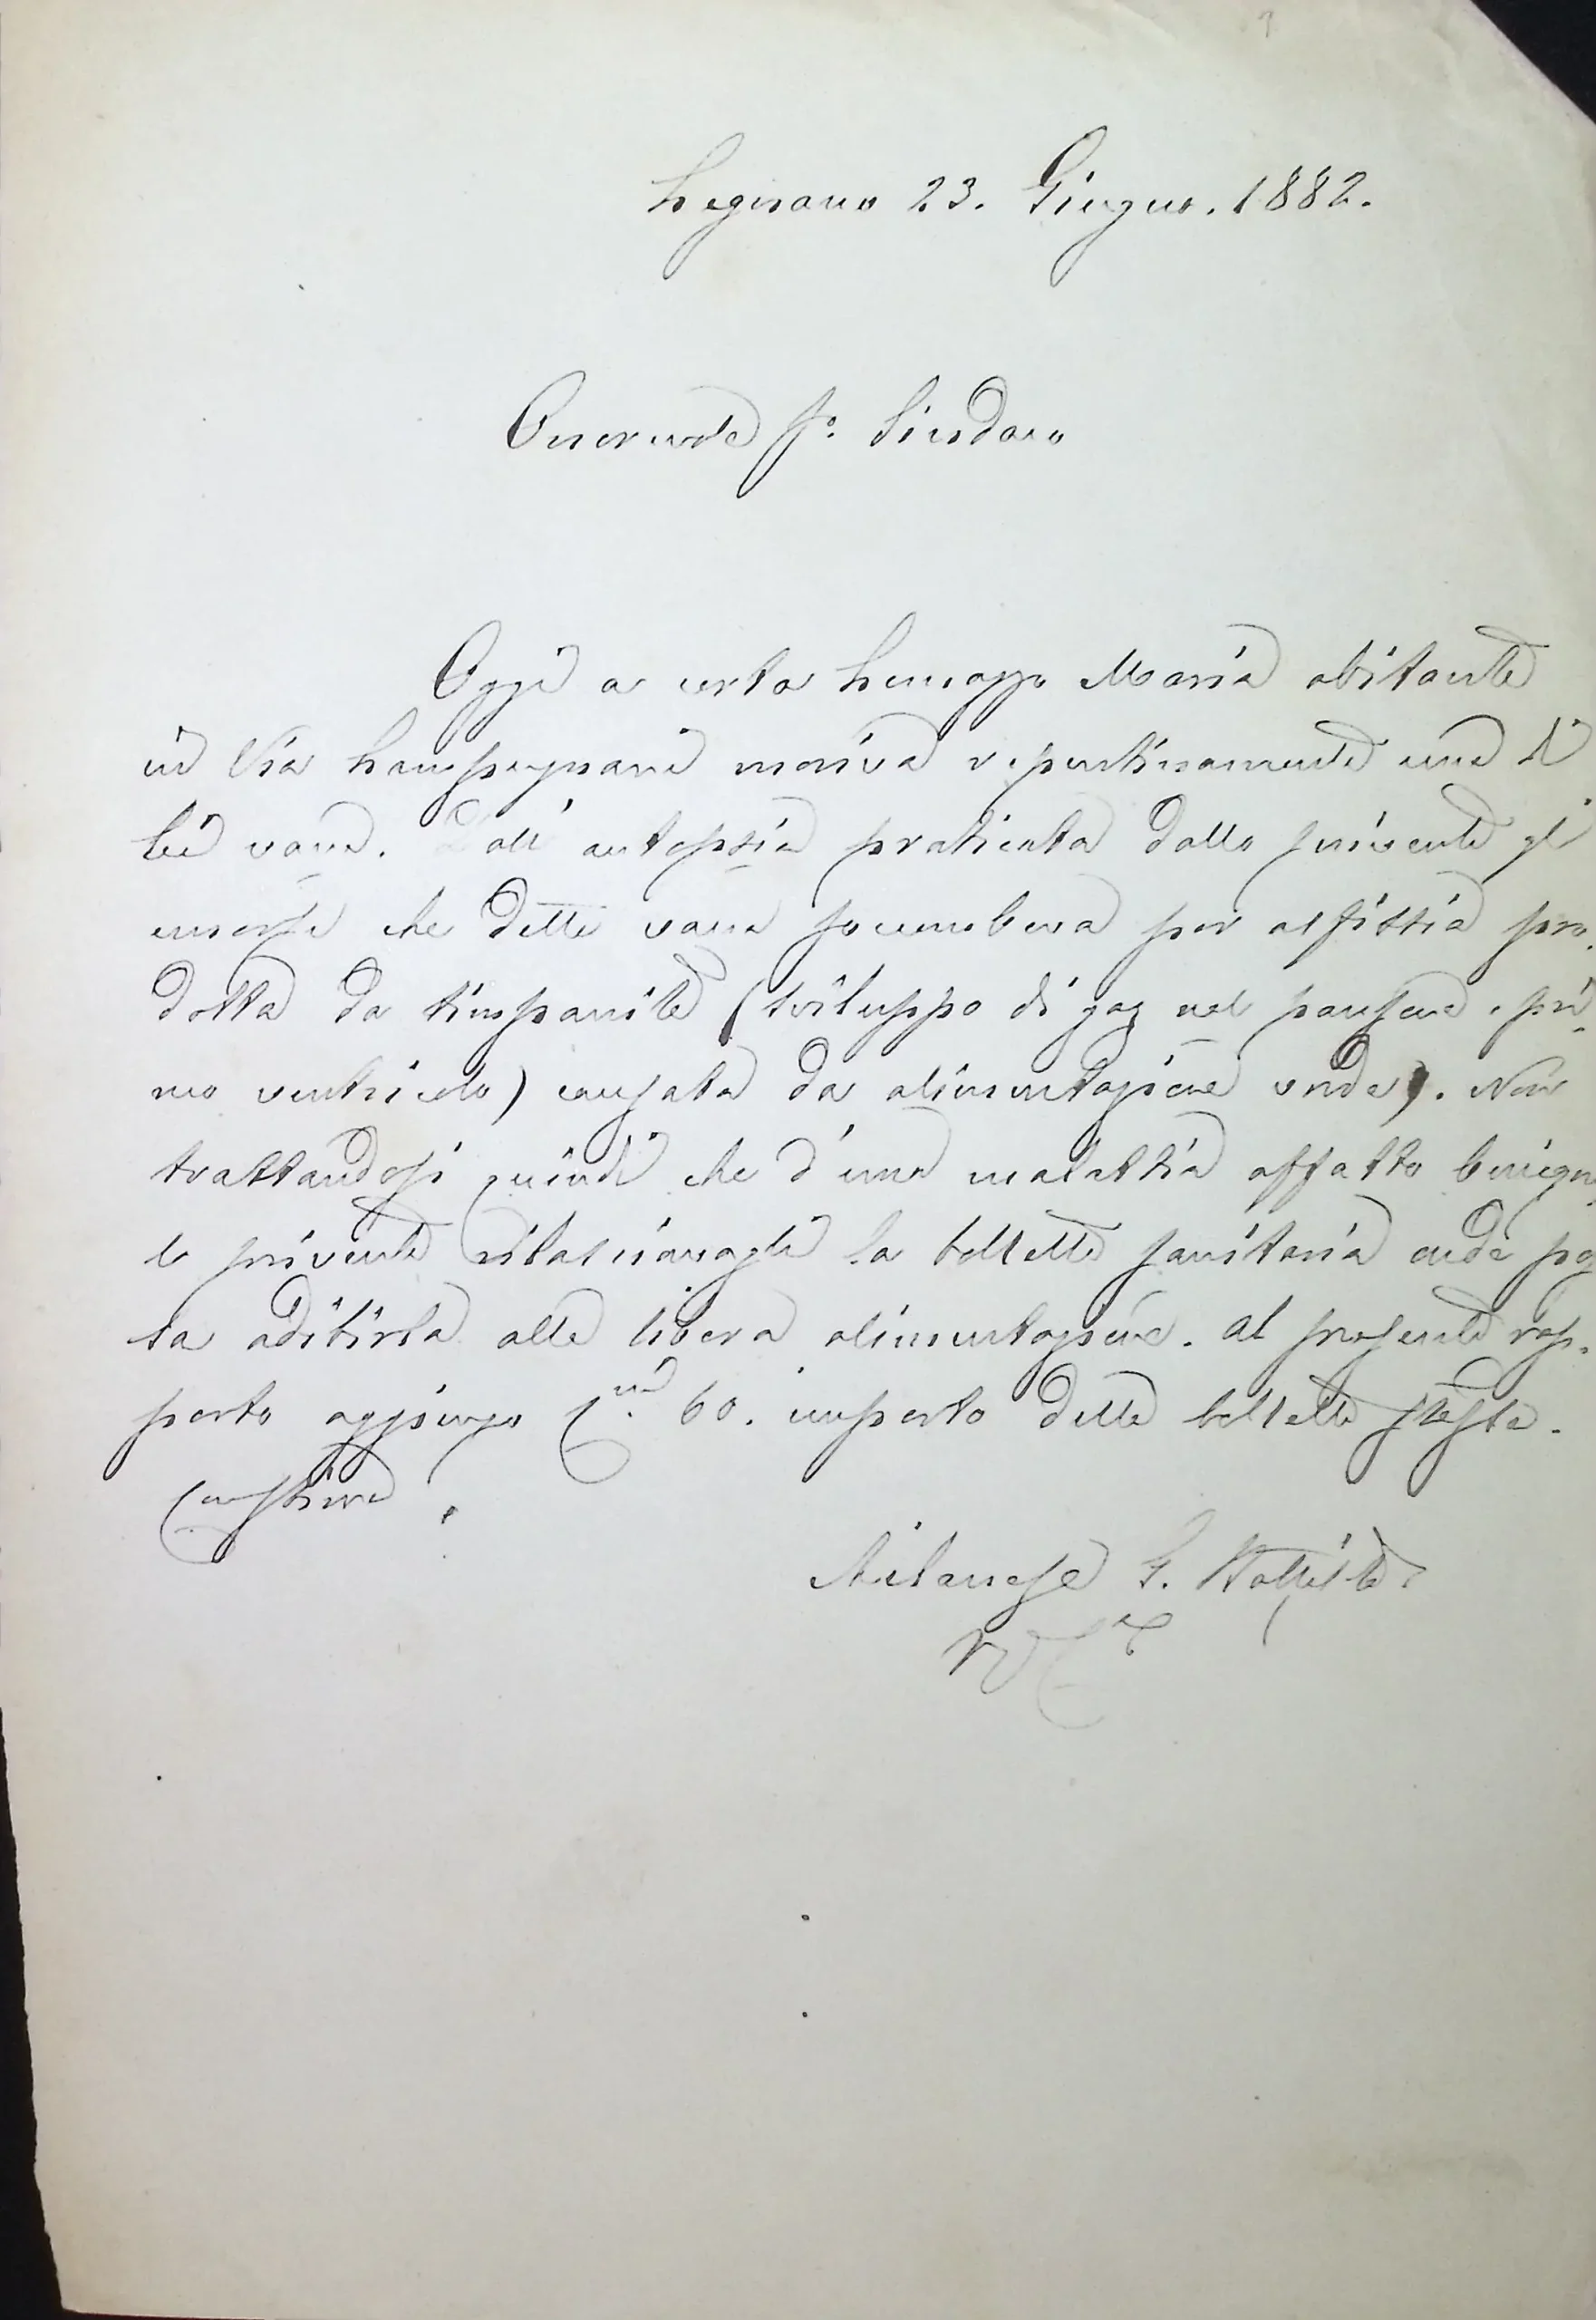 Legnano 23. Giugno. 1882.
Onorevole Sr. Sindaco
Oggi a certa Maria abitante
in Via moriva repentinamente una di
lei vacca. Dall' autopsia praticata dallo scrivente gli
emerse che detta vacca soccombeva per asfissia pro-
dotta da timpanite (sviluppo di gaz nel pansone o pri-
mo ventricolo) causata da alimentazione verde). Non
trattandosi quindi che d'una malattia affatto benigna
lo scrivente rilasciavagli la bolletta sanitaria onde pos
sa adibirla alla libera alimentazione. Al presente rap-
porto aggiungo Cmi 60. importo della bolletta stessa.
Con stima
Milanese G. Battista